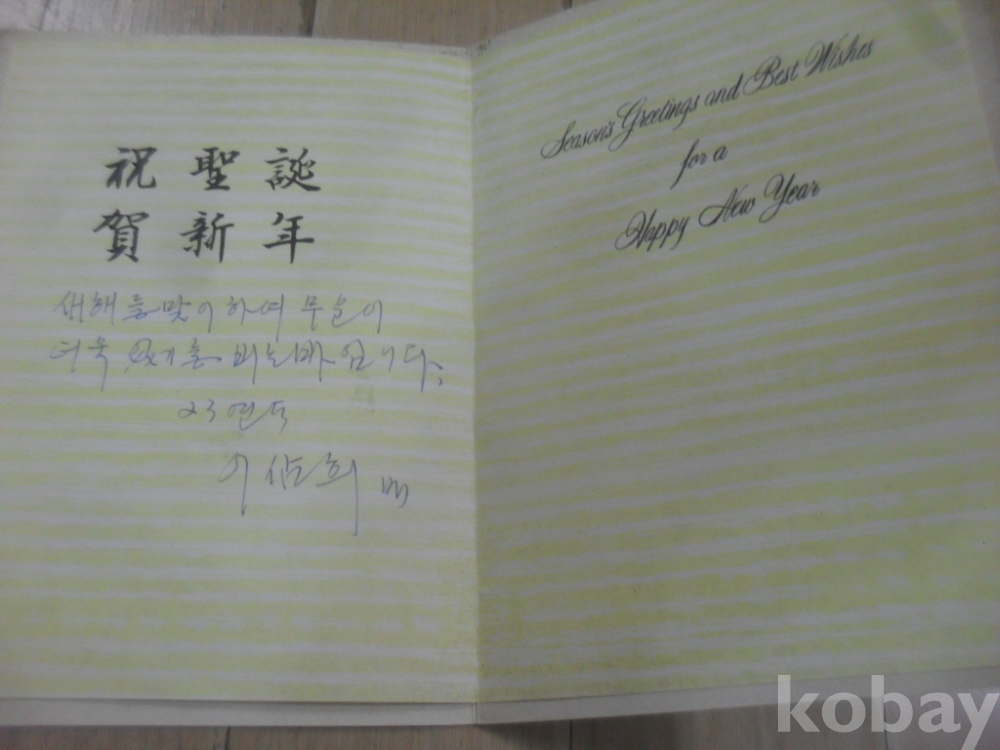 祝聖誕
賀新年
새해를 맞이하여 무운이
더욱 있기를 비는바 입니다.
23연두
Season's Greetings and Best Wishes
for a
Happy New Year
kobay